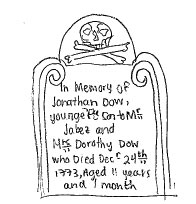 In Memory of
Jonathan Dow,
Son to Mr
Jabez and
Mrs Dorothy Dow
who Died Decr 24th
1773, Aged 11 years
and 1 month